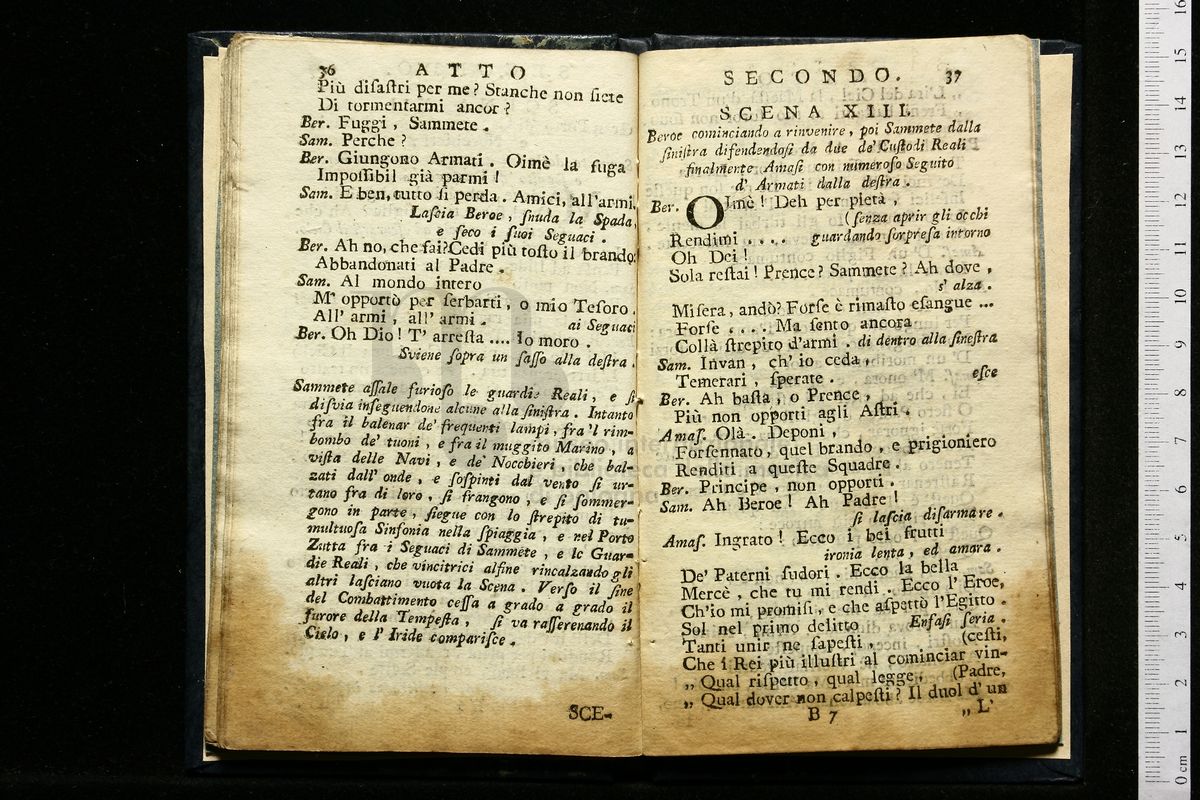 36 ATTO
Più disastri per me? Stanche non siete
Di tormentarmi ancor?
Ber. Fuggi, Sammete.
Sam. Perche?
Ber. Giungono Armati. Oimè la fuga
Impossibil già parmi!
Sam. E ben, tutto si perda. Amici, all'armi.
Lascia Beroe, snuda la Spada,
e seco i suoi Seguaci.
Ber. Ah no, che fai? Cedi più tosto il brando:
Abbandonati al Padre.
Sam. Al mondo intero
M' opportò per serbarti, o mio Tesoro.
All' armi, all' armi. ai Seguaci
Ber. Oh Dio! T' arresta .... Io moro.
Sviene sopra un sasso alla destra.
Sammete assale furioso le guardie Reali, e si
disvia inseguendone alcune alla sinistra. Intanto
fra il balenar de' frequenti lampi, fra 'l rim-
bombo de' tuoni, e fra il muggito Marino, a
vista delle Navi, e de' Nocchieri, che bal-
zati dall' onde, e sospinti dal vento si ur-
tano fra di loro, si frangono, e si sommer-
gono in parte, siegue con lo strepito di tu-
multuosa Sinfonia nella spiaggia, e nel Porto
Zutta fra i Seguaci di Sammete, e le Guar-
die Reali, che vincitrici alfine rincalzando gli
altri lasciano vuota la Scena. Verso il fine
del Combattimento cessa a grado a grado il
furore della Tempesta, si va rasserenando il
Cielo, e l' Iride comparisce.
SCE-
SECONDO. 37
SCENA XIII.
Beroe cominciando a rinvenire, poi Sammete dalla
sinistra difendendosi da due de' Custodi Reali
finalmente Amasi con numeroso Seguito
d' Armati dalla destra.
Ber. OImè! Deh per pietà,
(senza aprir gli occhi
Rendimi .... guardando sorpresa intorno
Oh Dei!
Sola restai! Prence? Sammete? Ah dove,
s' alza.
Misera, andò? Forse è rimasto esangue ...
Forse .... Ma sento ancora
Collà strepito d'armi. di dentro alla sinestra
Sam. Invan, ch' io ceda,
Temerari, sperate. esce
Ber. Ah basta, o Prence,
Più non opporti agli Astri.
Amas. Olà. Deponi,
Forsennato, quel brando, e prigioniero
Renditi a queste Squadre.
Ber. Principe, non opporti.
Sam. Ah Beroe! Ah Padre!
si lascia disarmare.
Amas. Ingrato! Ecco i bei frutti
ironia lenta, ed amara.
De' Paterni sudori. Ecco la bella
Mercè, che tu mi rendi. Ecco l' Eroe,
Ch'io mi promisi, e che aspettò l'Egitto.
Sol nel primo delitto Enfasi seria.
Tanti unir ne sapesti, (cesti,
Che i Rei più illustri al cominciar vin-
„ Qual rispetto, qual legge, (Padre,
„ Qual dover non calpesti? Il duol d' un
B 7 „ L'